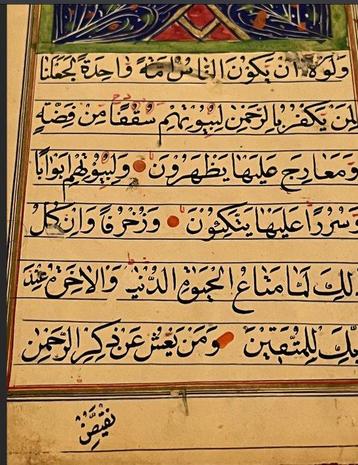 وَلَوْلَا أَنْ يَكُونَ النَّاسُ أُمَّةً وَاحِدَةً لَجَعَلْنَا
لِمَنْ يَكْفُرُ بِالرَّحْمٰنِ لِبُيُوتِهِمْ سُقُفًا مِنْ فِضَّةٍ
وَمَعَارِجَ عَلَيْهَا يَظْهَرُونَ وَلِبُيُوتِهِمْ أَبْوَابًا
وَسُرُرًا عَلَيْهَا يَتَّكِئُونَ وَزُخْرُفًا وَإِنْ كُلُّ
ذٰلِكَ لَمَّا مَتَاعُ الْحَيٰوةِ الدُّنْيَا وَالْاٰخِرَةُ عِنْدَ
رَبِّكَ لِلْمُتَّقِينَ وَمَنْ يَعْشُ عَنْ ذِكْرِ الرَّحْمٰنِ
نُقَيِّضْ